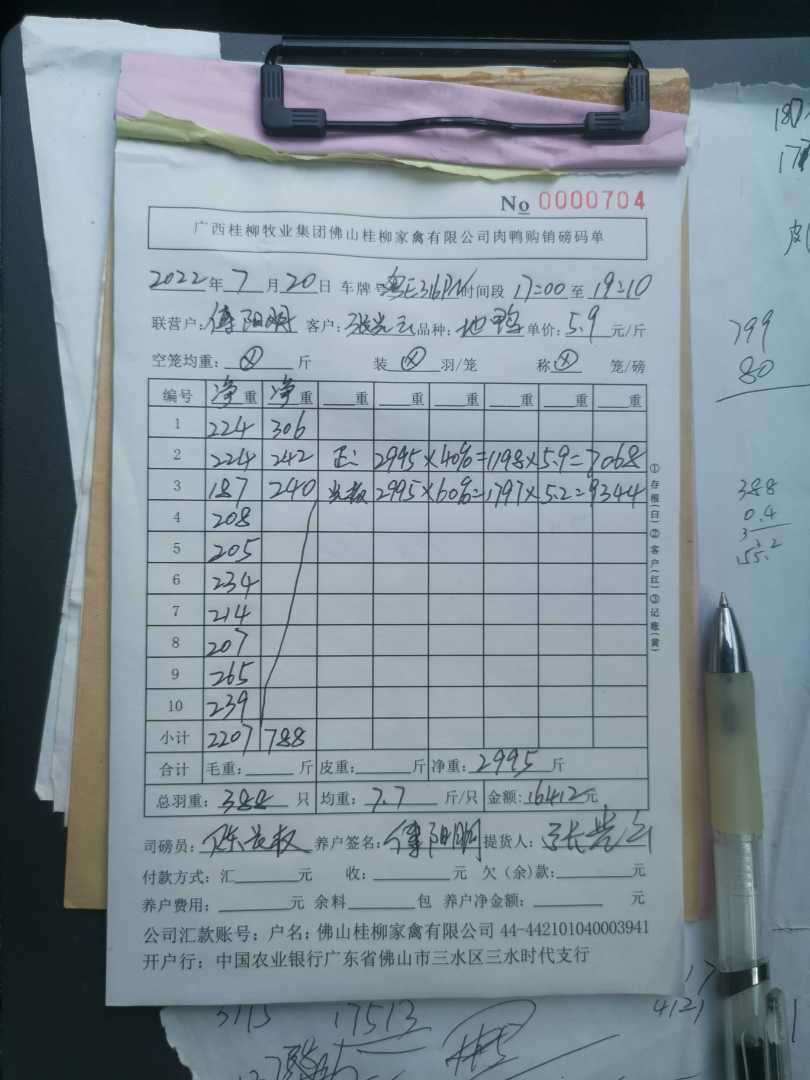 187
17
皮
No 0000704
广西桂柳牧业集团佛山桂柳家禽有限公司肉鸭购销磅码单
2022年7月20日 车牌号粤E316PN时间段 17:00至19:10
联营户:傅阳明 客户:张 品种:地鸭 单价:5.9元/斤
空笼均重:⊗斤 装⊗羽/笼 称⊗笼/磅
编号 净重 净重 重 重 重 重 重 重
1 224 306
2 224 242 正: 2995×40%=1198×5.9=7068
3 187 240 2995×60%=1797×5.2=9344
4 208
5 205
6 234
7 214
8 207
9 265
10 239
小计 2207 788
合计 毛重: 斤 皮重: 斤 净重:2995斤
总羽重:388只 均重:7.7斤/只 金额:16412元
司磅员:陈 权 养户签名:傅阳明 提货人:张
付款方式:汇 元 收: 元 欠(余)款: 元
养户费用: 元 余料 包 养户净金额: 元
公司汇款账号:户名:佛山桂柳家禽有限公司 44-442101040003941
开户行:中国农业银行广东省佛山市三水区三水时代支行
①存根(白)②客户(红)③记账(黄)
799
80
388
0.4
155.2
17513
17
4121